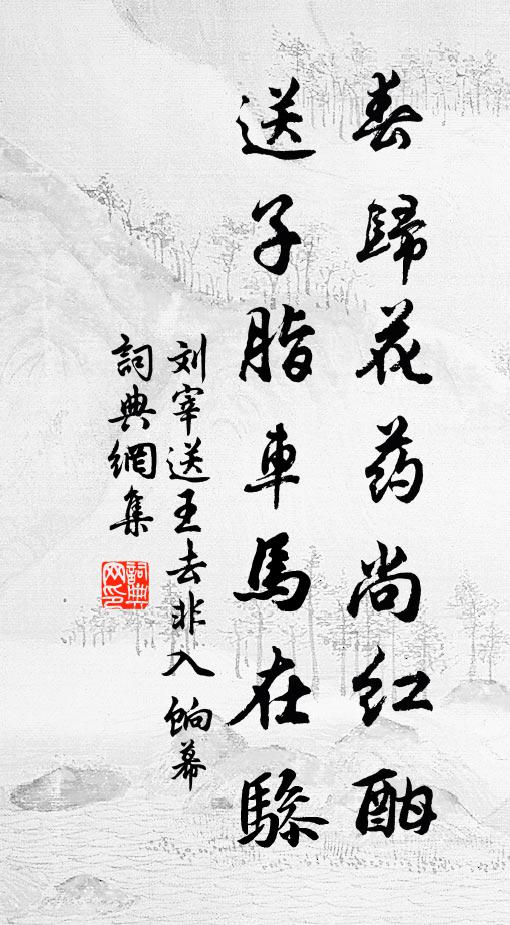 春歸花药尚红酣
送子脂車馬在驂
刘宰送王去非入餉幕
詞典網集
詞典网印